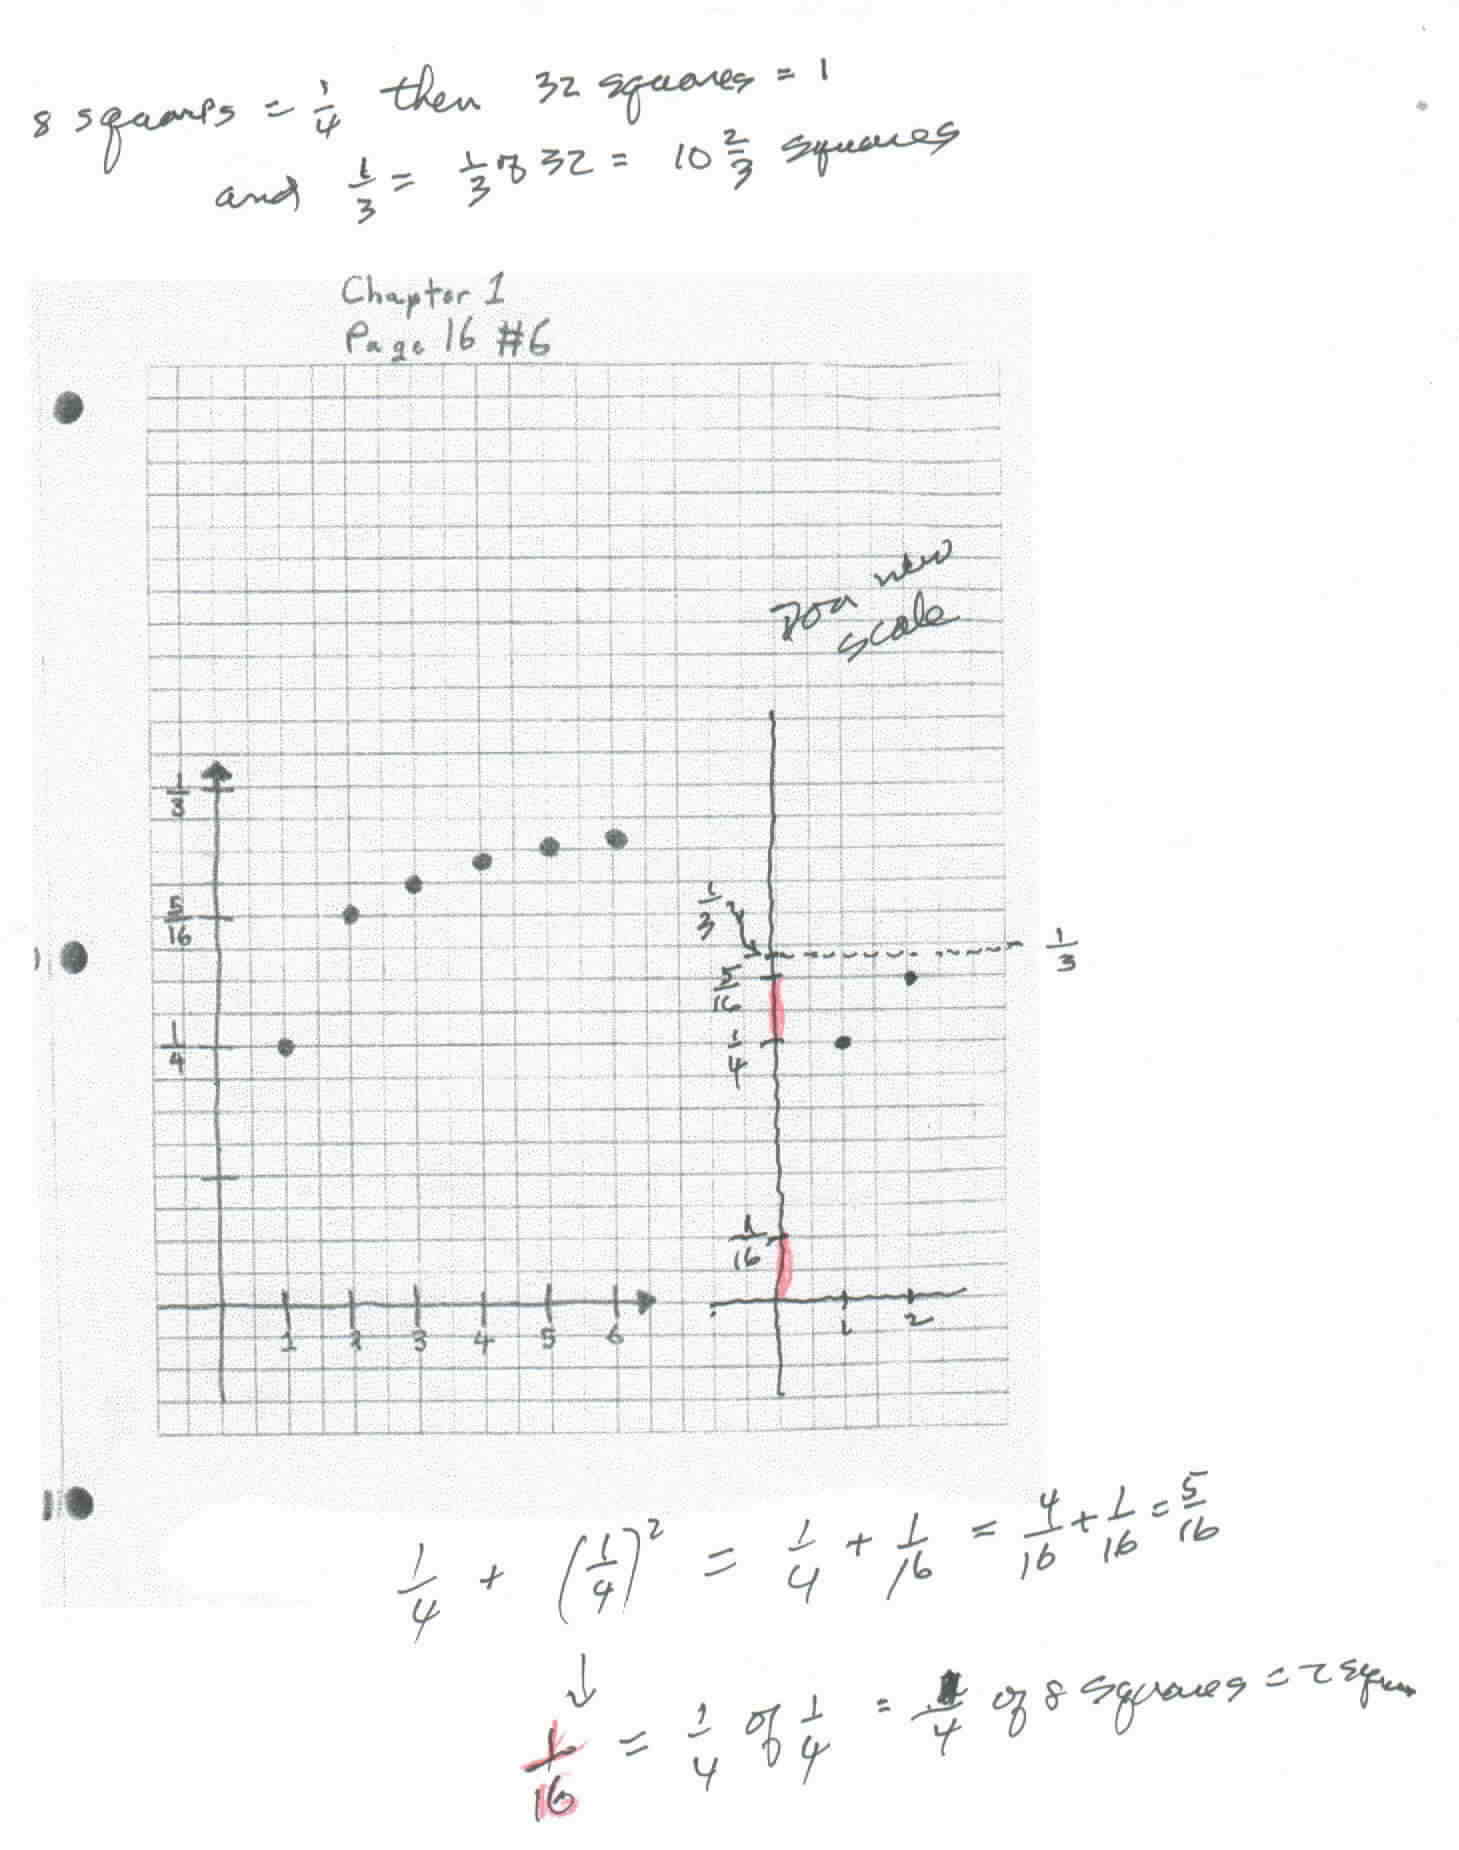 8 squares = 1/4 then 32 squares = 1
and 1/3 = 1/3 of 32 = 10 2/3 squares
Chapter 1
Page 16 #6
new
scale
1/3
5/16
1/4
1 2 3 4 5 6
1/3
1/3
5/16
1/4
1/16
1 2
1/4 + (1/4)² = 1/4 + 1/16 = 4/16 + 1/16 = 5/16
↓
1/16 = 1/4 of 1/4 = 1/4 of 8 squares = 2